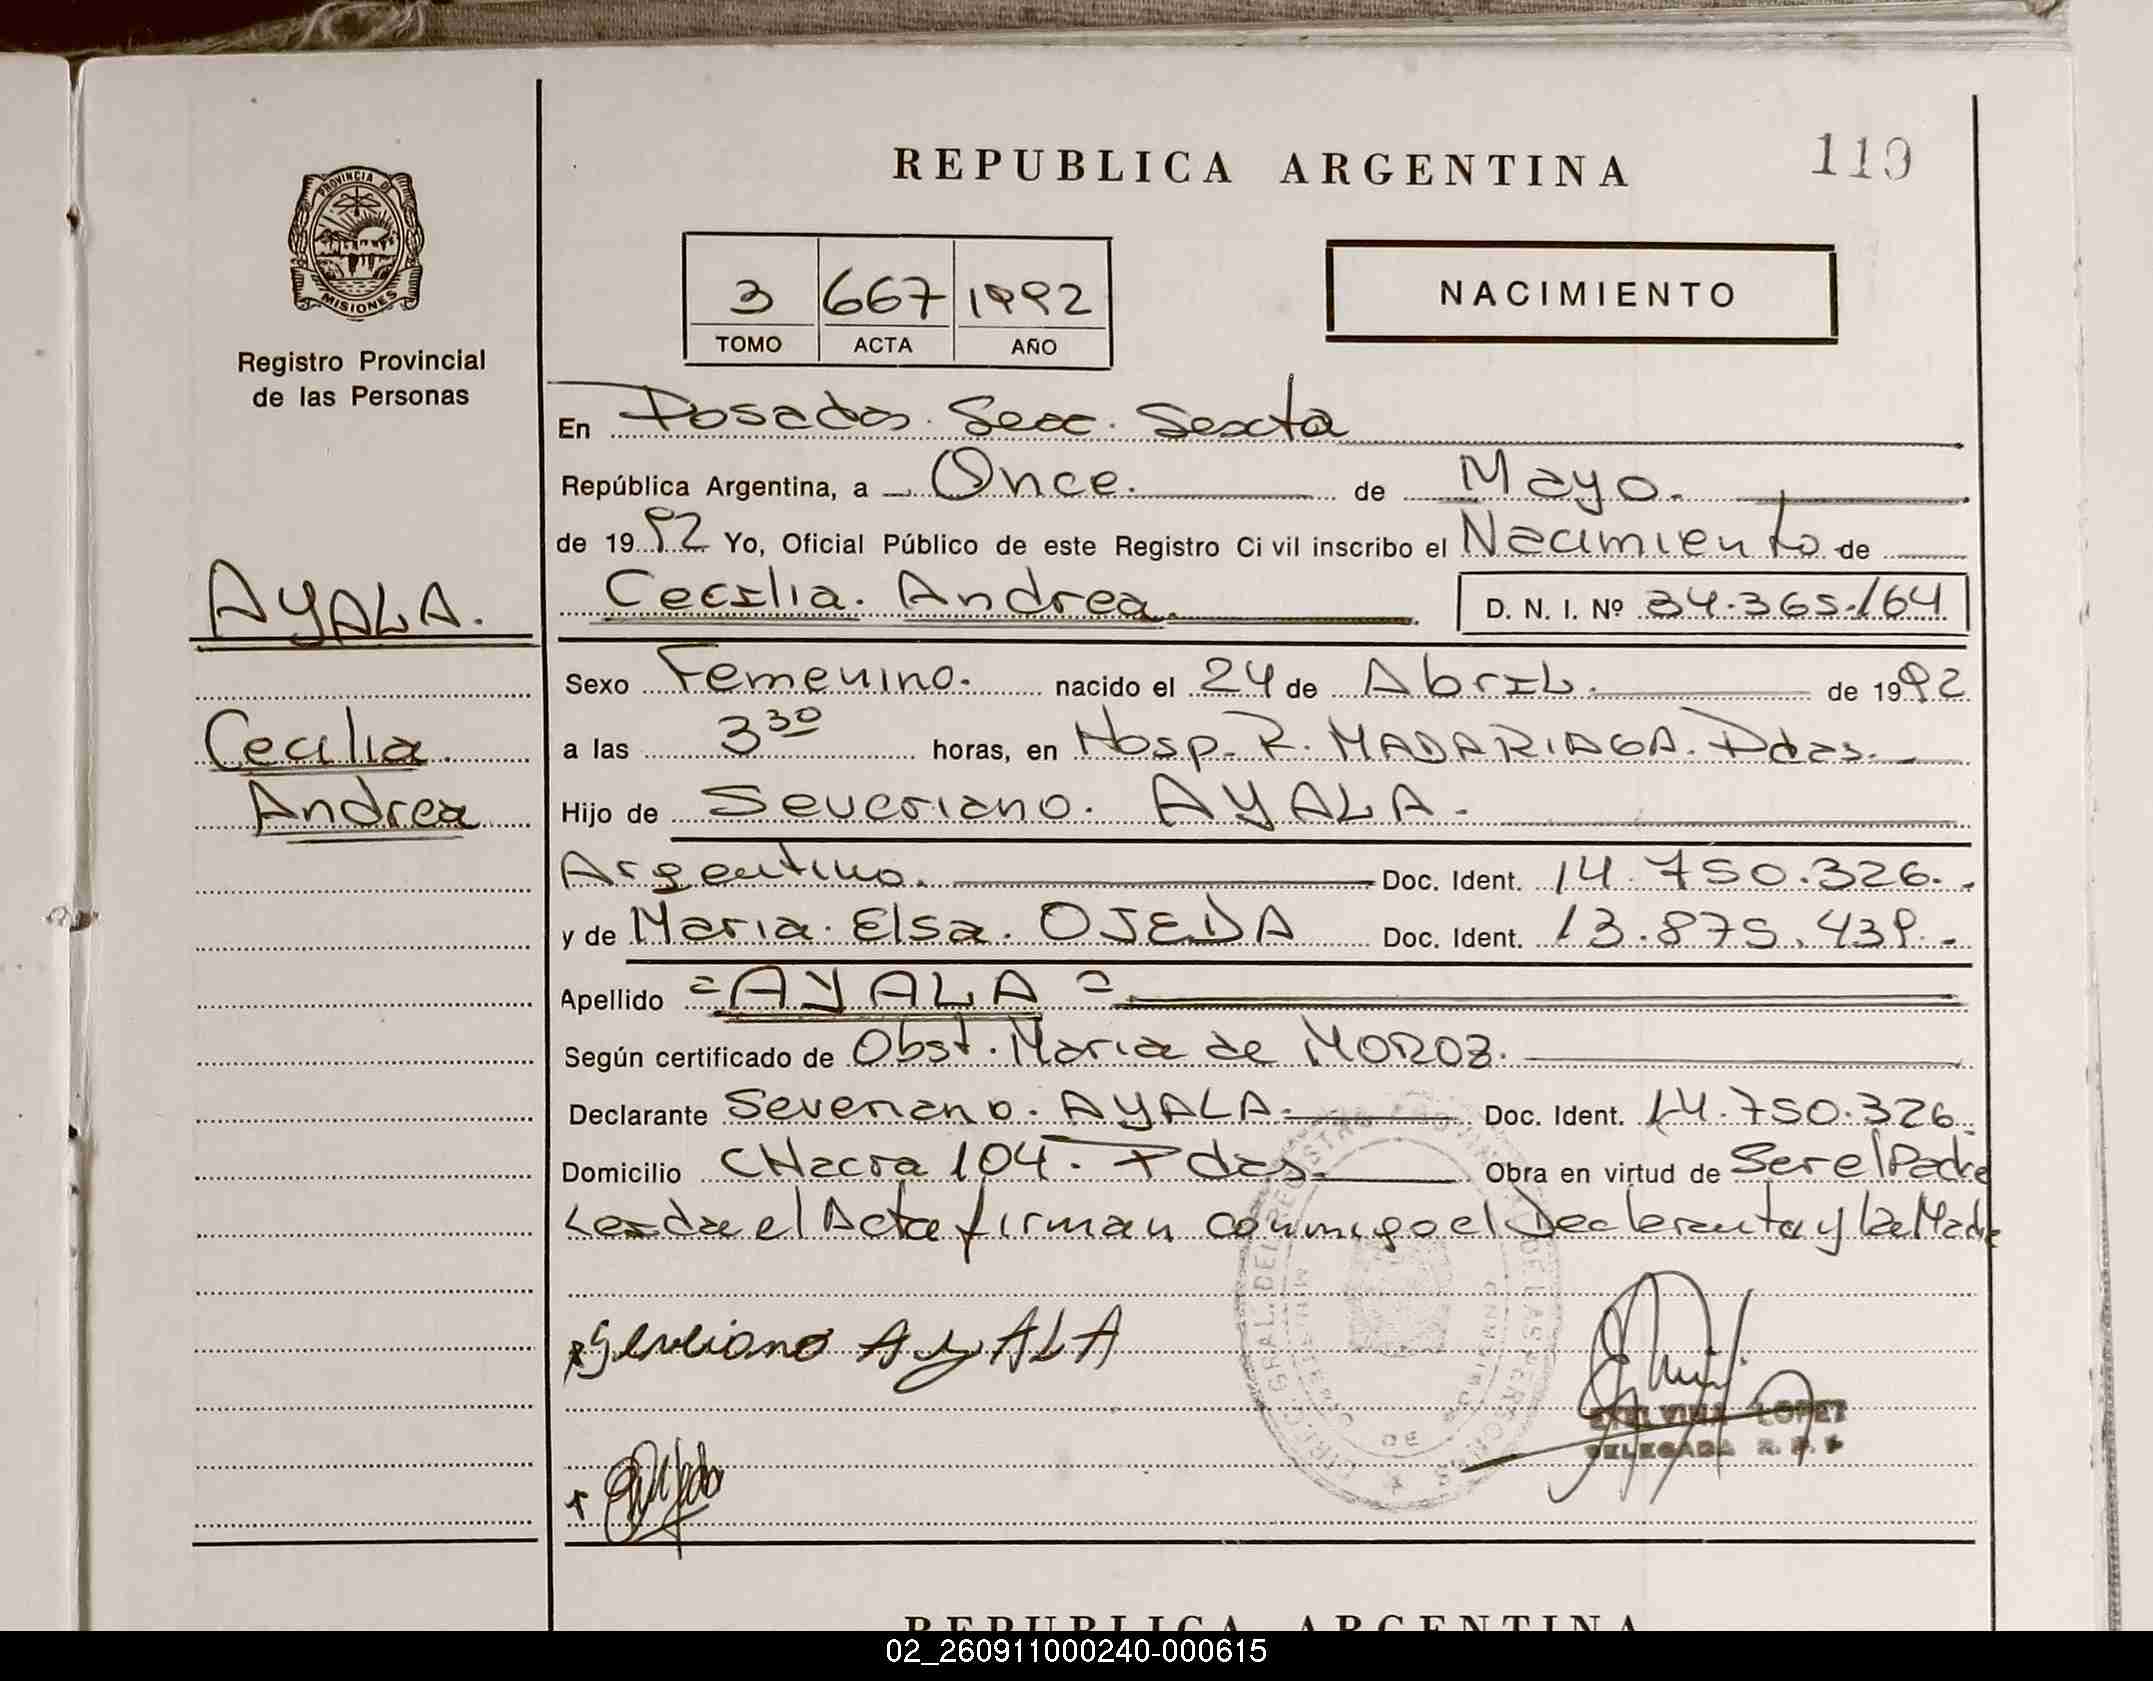 REPUBLICA ARGENTINA
119
PROVINCIA DE
MISIONES
Registro Provincial
de las Personas
3 667 1992
TOMO ACTA AÑO
NACIMIENTO
En Posadas. Secc. Sexta
República Argentina, a Once. de Mayo.
de 1992 Yo, Oficial Público de este Registro Civil inscribo el Nacimiento de
Cecilia. Andrea. D. N. I. Nº 34.365.164
AYALA.
Cecilia
Andrea
Sexo Femenino. nacido el 24 de Abril. de 1992
a las 3 30 horas, en Hosp. R. MADARIAGA. Pdas.
Hijo de Severiano. AYALA.
Argentino. Doc. Ident. 14.750.326.
y de Maria. Elsa. OJEDA Doc. Ident. 13.875.439.
Apellido = AYALA =
Según certificado de Obst. Maria de MOROZ.
Declarante Severiano. AYALA. Doc. Ident. 14.750.326.
Domicilio CHacra 104. Pdas. Obra en virtud de Ser el Padre
Leida el Acta firman conmigo el Declarante y la Madre
AyALA
LOPEZ
DELEGADA R. P. P.
REPUBLICA ARGENTINA
02_260911000240-000615